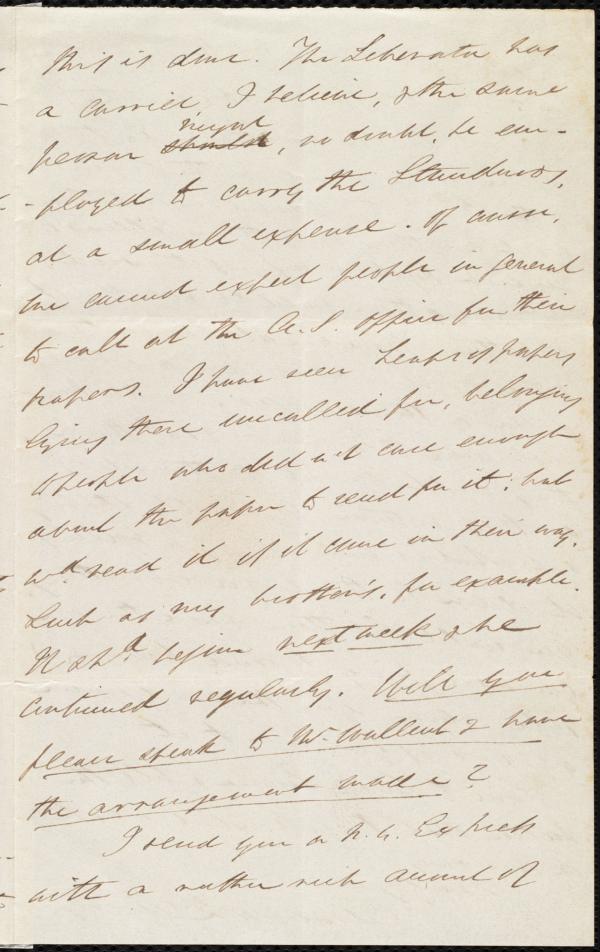 this is done. The Liberator has
a carrier, I believe, & the same
person <del>should</del> might, no doubt, be em-
-ployed to carry the Standards,
at a small expense. Of course,
we cannot expect people in general
to call at the A.S. office for their
papers. I have seen heaps of papers
lying there uncalled for, belonging
to people who did not care enough
about the paper to send for it; but
wd. read it if it came in their way.
Such as my brother's, for example.
It shd. begin next week & be
continued regularly. Will you
please speak to Mr. Wallcut & have
the arrangement made?
I send you a N.Y. Express
with a rather rich account of